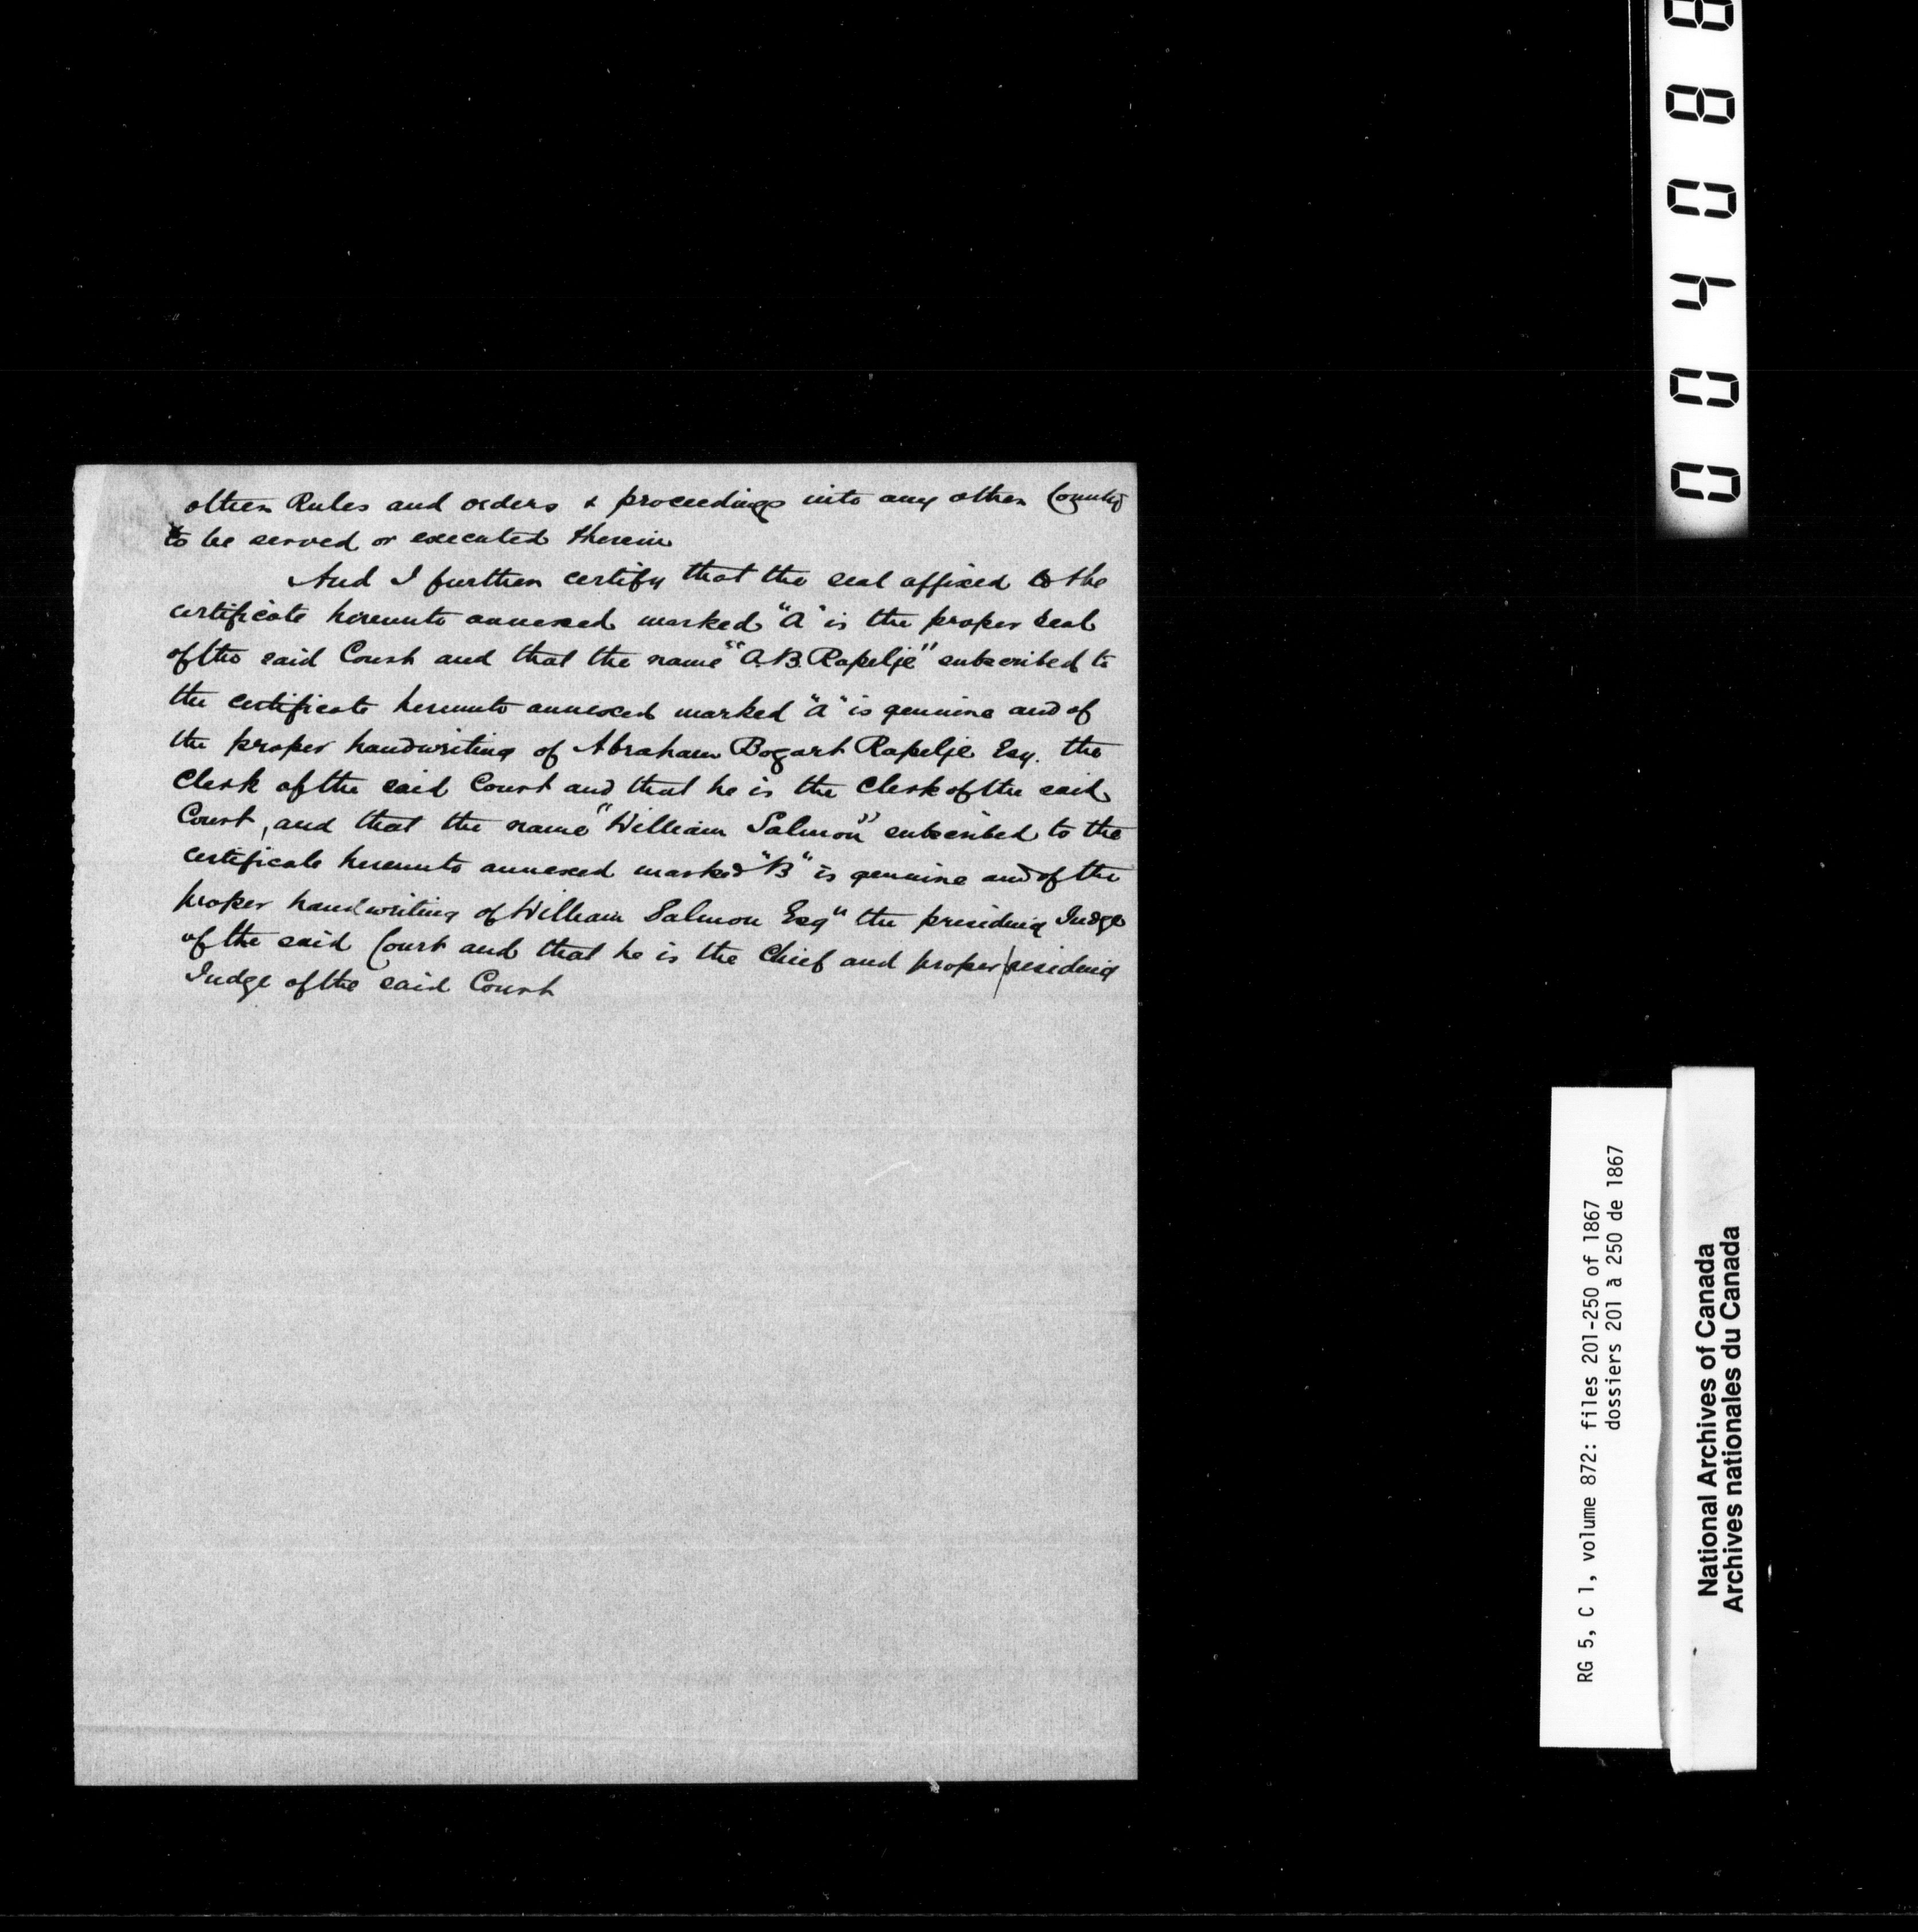 other Rules and orders & proceedings into any other County
to be served or executed therein
And I further certify that the seal affixed to the
certificate hereunto annexed marked "A" is the proper seal
of the said Court and that the name "A.B. Rapelje" subscribed to
the certificate hereunto annexed marked "A" is genuine and of
the proper handwriting of Abraham Bogart Rapelje Esq. the
Clerk of the said Court and that he is the Clerk of the said
Court, and that the name "William Salmon" subscribed to the
certificate hereunto annexed marked "B" is genuine and of the
proper handwriting of William Salmon Esq" the presiding Judge
of the said Court and that he is the Chief and proper presiding
Judge of the said Court
004088
RG 5, C 1, volume 872: files 201-250 of 1867
dossiers 201 à 250 de 1867
National Archives of Canada
Archives nationales du Canada